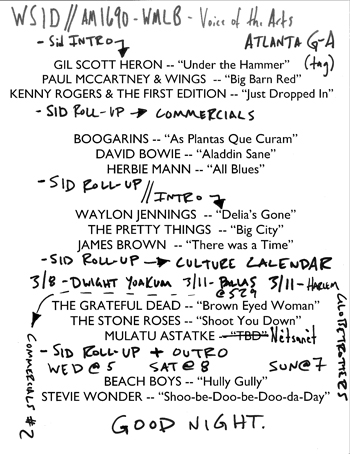 WSID // AM1690 - WMLB - Voice of the Arts
- Sid INTRO
ATLANTA GA
GIL SCOTT HERON -- “Under the Hammer” (tag)
PAUL MCCARTNEY & WINGS -- “Big Barn Red”
KENNY ROGERS & THE FIRST EDITION -- “Just Dropped In”
- SID ROLL-UP → COMMERCIALS
BOOGARINS -- “As Plantas Que Curam”
DAVID BOWIE -- “Aladdin Sane”
HERBIE MANN -- “All Blues”
- SID ROLL-UP // INTRO
WAYLON JENNINGS -- “Delia’s Gone”
THE PRETTY THINGS -- “Big City”
JAMES BROWN -- “There was a Time”
- SID ROLL-UP → CULTURE CALENDAR
3/8 - DWIGHT YOAKUM 3/11 - DALLAS @ 529 3/11 - HARLEM GLOBETROTTERS
THE GRATEFUL DEAD -- “Brown Eyed Woman”
THE STONE ROSES -- “Shoot You Down”
MULATU ASTATKE -- “TBD” Nètsanèt
COMMERCIALS #2
- SID ROLL-UP + OUTRO
WED @ 5 SAT @ 8 SUN @ 7
BEACH BOYS -- “Hully Gully”
STEVIE WONDER -- “Shoo-be-Doo-be-Doo-da-Day”
GOOD NIGHT.